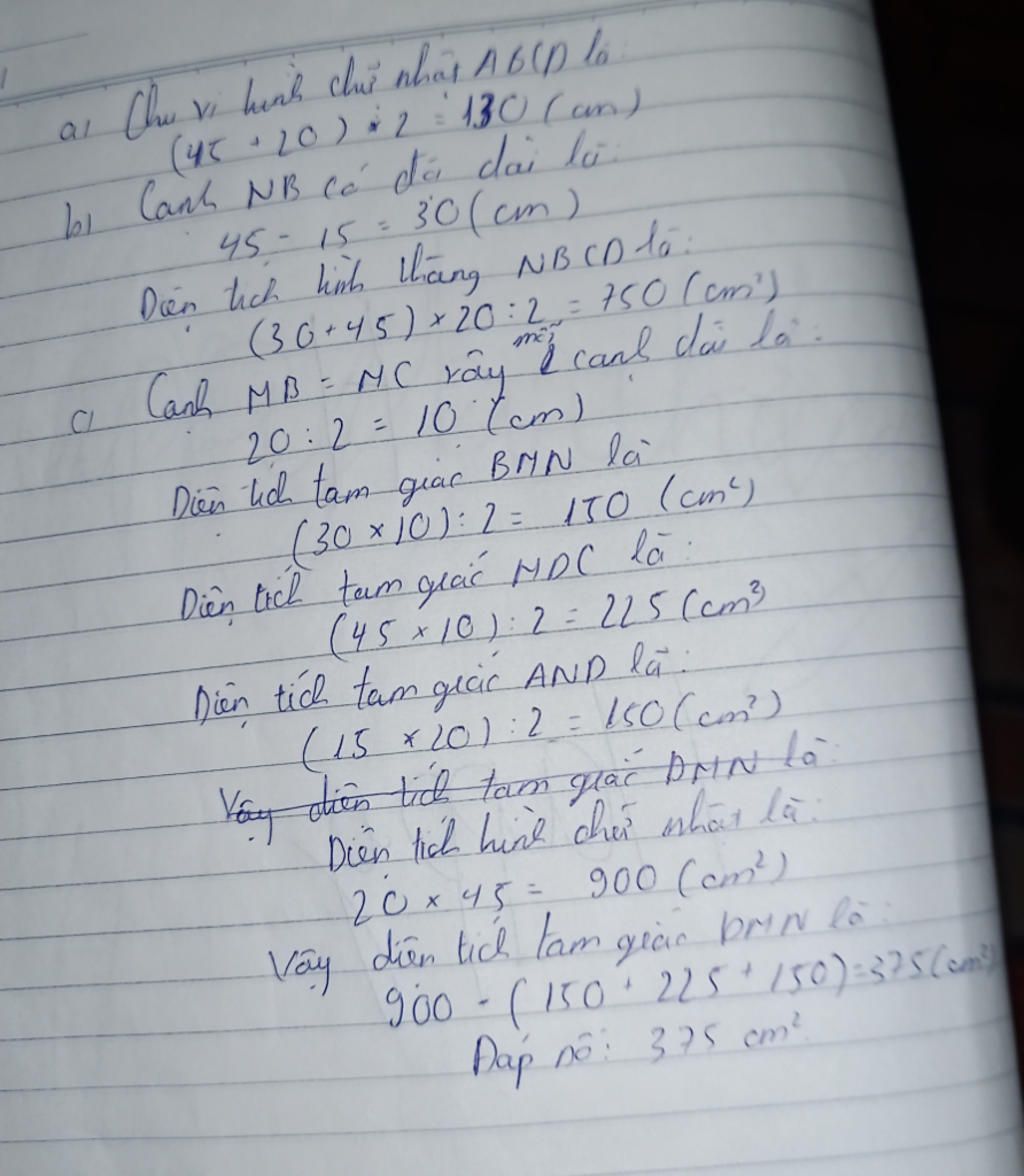 a) Chu vi hình chữ nhật ABCD là
(45 + 20) × 2 = 130 (cm)
b) Cạnh NB có độ dài là:
45 - 15 = 30 (cm)
Diện tích hình thang NBCD là:
(30 + 45) × 20 : 2 = 750 (cm²)
c) Cạnh MB = MC vậy mỗi cạnh dài là:
20 : 2 = 10 (cm)
Diện tích tam giác BMN là
(30 × 10) : 2 = 150 (cm²)
Diện tích tam giác MDC là:
(45 × 10) : 2 = 225 (cm²)
Diện tích tam giác AND là:
(15 × 20) : 2 = 150 (cm²)
Vậy diện tích tam giác DMN là:
Diện tích hình chữ nhật là:
20 × 45 = 900 (cm²)
Vậy diện tích tam giác DMN là:
900 - (150 + 225 + 150) = 375 (cm²)
Đáp số: 375 cm²